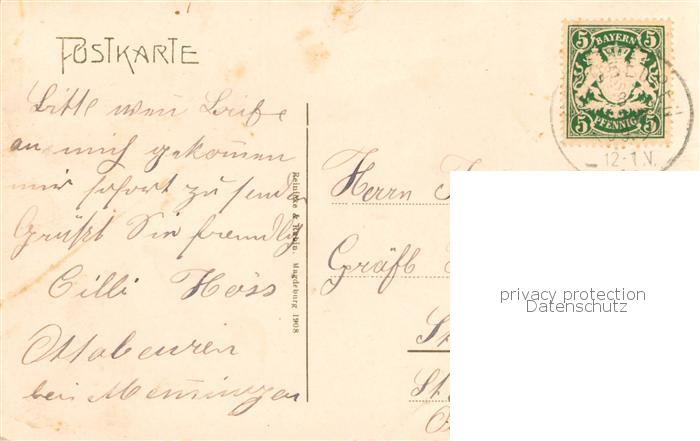 POSTKARTE
Bitte wen Briefe
an mich gekomen
mir sofort zu senden
Grüßt Sie freundlig
Cilli Höss
Ottobeuren
bei Memmingen
Reinicke & Rubin, Magdeburg 1908
Herrn
Gräfl
St
St
5 BAYERN 5
5 PFENNIG 5
12-1 N.
privacy protection
Datenschutz